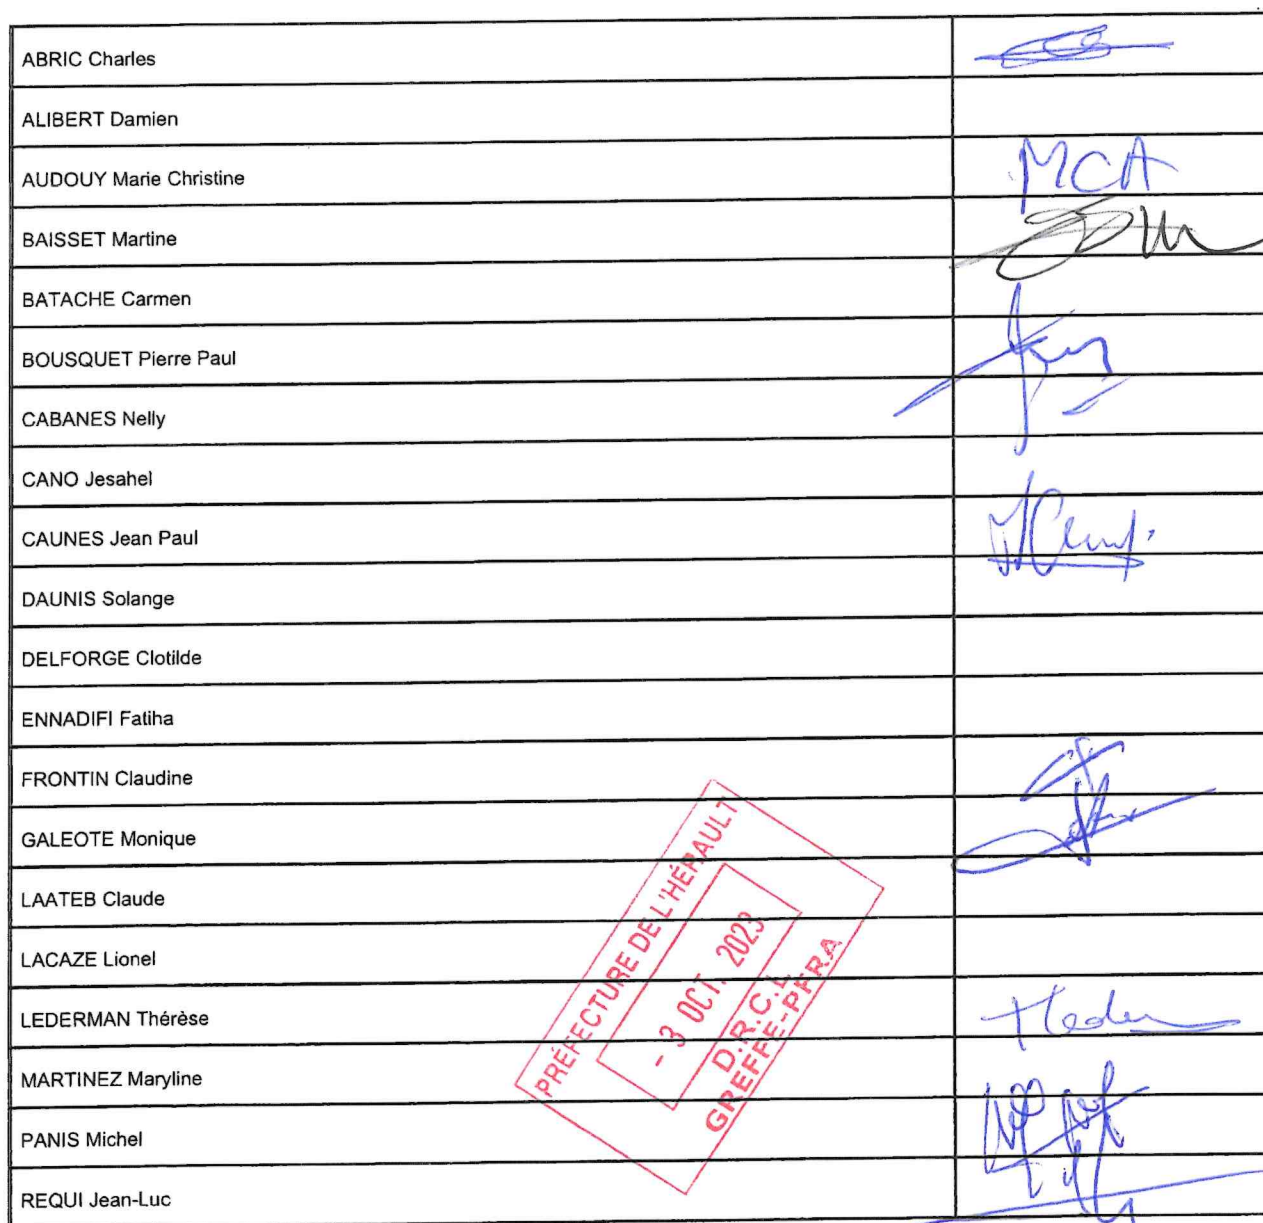 ABRIC Charles
ALIBERT Damien
AUDOUY Marie Christine
MCA
BAISSET Martine
BATACHE Carmen
BOUSQUET Pierre Paul
CABANES Nelly
CANO Jesahel
CAUNES Jean Paul
DAUNIS Solange
DELFORGE Clotilde
ENNADIFI Fatiha
FRONTIN Claudine
GALEOTE Monique
LAATEB Claude
LACAZE Lionel
LEDERMAN Thérèse
MARTINEZ Maryline
PANIS Michel
REQUI Jean-Luc
PRÉFECTURE DE L'HÉRAULT
- 3 OCT. 2023
D.R.C.L.
GREFFE-PFRA